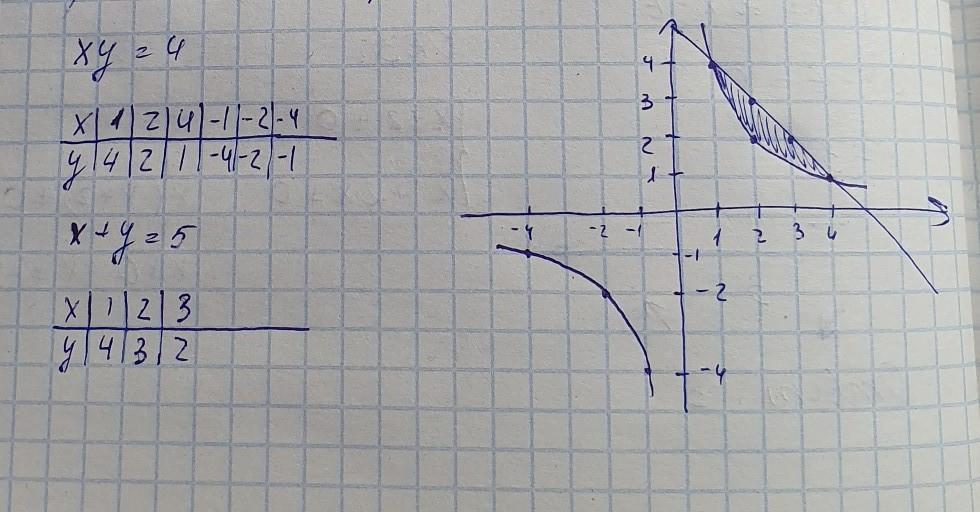 xy = 4
x 1 2 4 -1 -2 -4
y 4 2 1 -4 -2 -1
x + y = 5
x 1 2 3
y 4 3 2
4
3
2
1
-4 -2 -1 1 2 3 4
-1
-2
-4